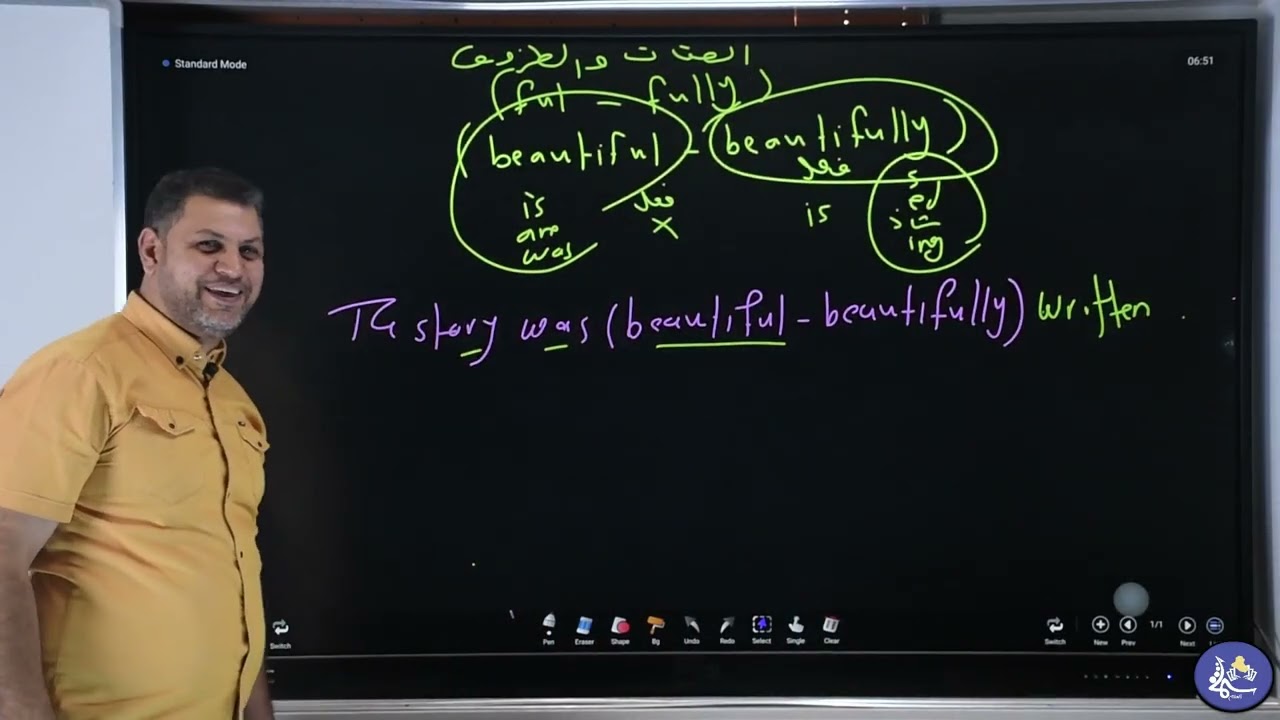 Standard Mode
06:51
الصفات والظروف
(ful - fully)
(beautiful - beautifully)
is فعل فعل s
are x is ed
was شاذ
ing
The story was (beautiful - beautifully) written .
Switch Pen Eraser Shape Bg Undo Redo Select Single Clear Switch New Prev 1/1 Next